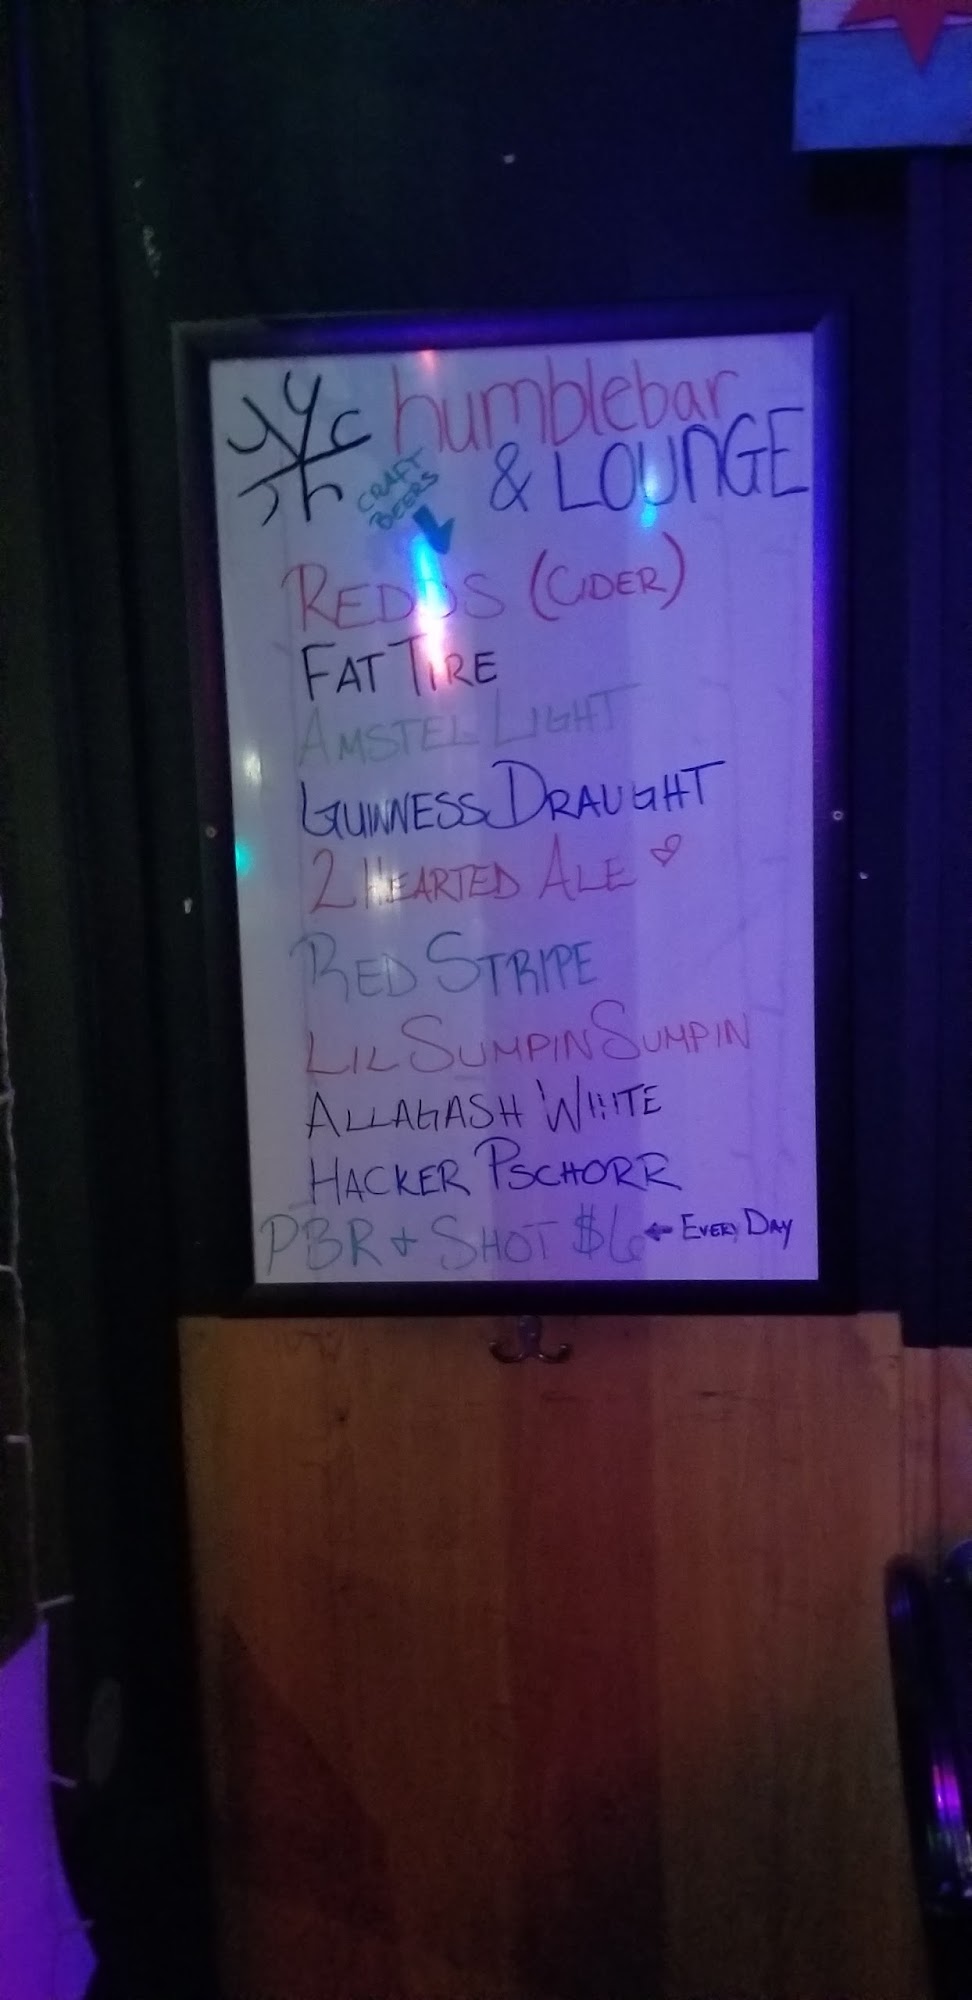 humblebar
& LOUNGE
CRAFT
BEERS
REDDS (CIDER)
FAT TIRE
AMSTEL LIGHT
GUINNESS DRAUGHT
2 HEARTED ALE
RED STRIPE
LIL SUMPIN SUMPIN
ALLAGASH WHITE
HACKER PSCHORR
PBR + SHOT $6 ← EVERY DAY